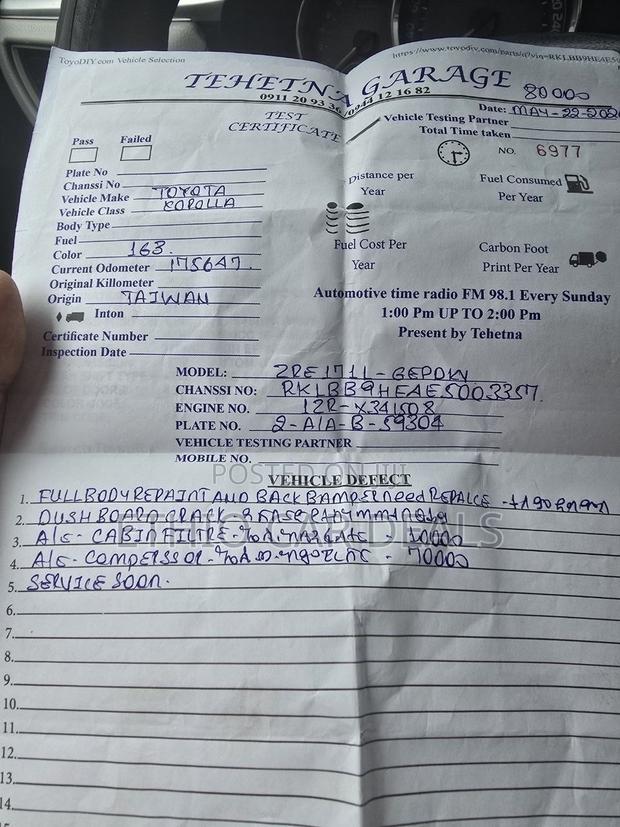 ToyoDIY.com Vehicle Selection
https://www.toyodiy.com/parts/q?vin=RKLBB9HEAE50
TEHETNA GARAGE
80000
0911 20 93 36/0944 12 16 82
Date: MAY-29-202
TEST
CERTIFICATE
Vehicle Testing Partner
Total Time taken
Pass Failed
NO. 6977
Plate No
Chanssi No
Vehicle Make TOYOTA
Vehicle Class COROLLA
Body Type
Fuel
Color 163.
Current Odometer 175647.
Original Killometer
Origin TAIWAN
Inton
Certificate Number
Inspection Date
Distance per
Year
Fuel Consumed
Per Year
Fuel Cost Per
Year
Carbon Foot
Print Per Year
Automotive time radio FM 98.1 Every Sunday
1:00 Pm UP TO 2:00 Pm
Present by Tehetna
MODEL: ZRE171L-GEPDKW
CHANSSI NO: RKLBB9HEAE5003357.
ENGINE NO. 1ZR-X341508
PLATE NO. 2-A/A-B-59304
VEHICLE TESTING PARTNER
MOBILE NO.
POSTED ON JIJI
VEHICLE DEFECT
1. FULL BODY REPAINT AND BACK BAMPER NEED REPALCE -
2. DUSH BOARD CRACK
3. A/C - CABIN FILTRE - = 10000
4. A/c - COMPERSSOR - = 70000
5. SERVICE SOON.
ETHIO CAR DEALS
6.
7.
8.
9.
10.
11.
12.
13.
14.